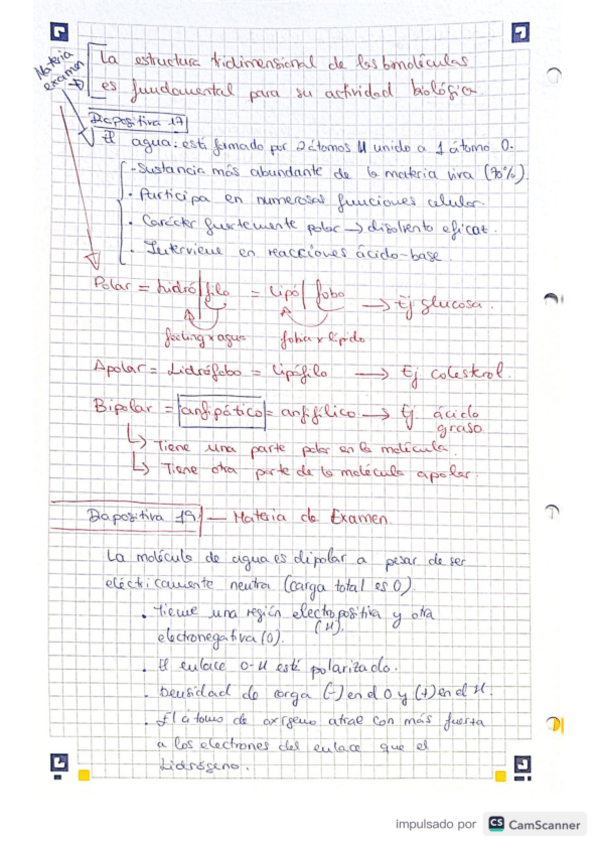 Materia
examen
La estructura tridimensional de las biomoléculas
es fundamental para su actividad biológica.
Diapositiva 17
El agua: está formado por 2 átomos H unido a 1 átomo O.
- Sustancia más abundante de la materia viva (70%).
· Participa en numerosas funciones celular.
· Carácter fuertemente polar → disolvente eficaz.
· Interviene en reacciones ácido-base.
Polar = hidró/filo = lipó/fobo → Ej glucosa.
feeling x agua fobia x lípido
Apolar = hidrófobo = lipófilo → Ej colesterol.
Bipolar = anfipático = anfifílico → Ej ácido
graso
↳ Tiene una parte polar en la molécula.
↳ Tiene otra parte de la molécula apolar.
Diapositiva 19 — Materia de Examen.
La molécula de agua es dipolar a pesar de ser
eléctricamente neutra (carga total es 0).
· Tiene una región electropositiva y otra
(H)
electronegativa (O).
· El enlace O-H está polarizado.
· Densidad de carga (-) en el O y (+) en el H.
· El átomo de oxígeno atrae con más fuerza
a los electrones del enlace que el
hidrógeno.
impulsado por CS CamScanner